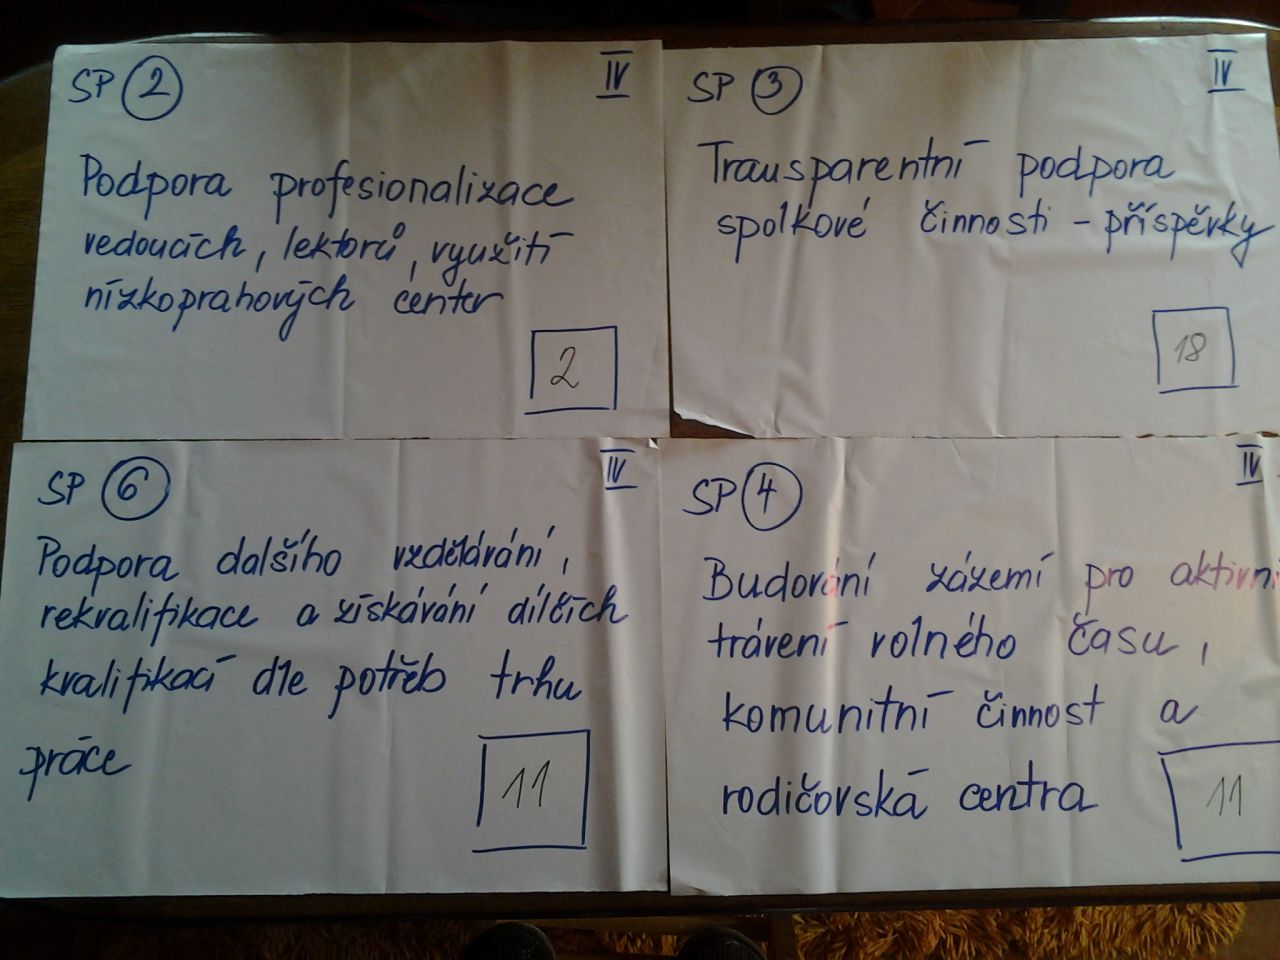 SP 2 IV
Podpora profesionalizace
vedoucích, lektorů, využití
nízkoprahových center
2
SP 3 IV
Transparentní podpora
spolkové činnosti - příspěvky
18
SP 6 IV
Podpora dalšího vzdělávání,
rekvalifikace a získávání dílčích
kvalifikací dle potřeb trhu
práce
11
SP 4 IV
Budování zázemí pro aktivní
trávení volného času,
komunitní činnost a
rodičovská centra
11